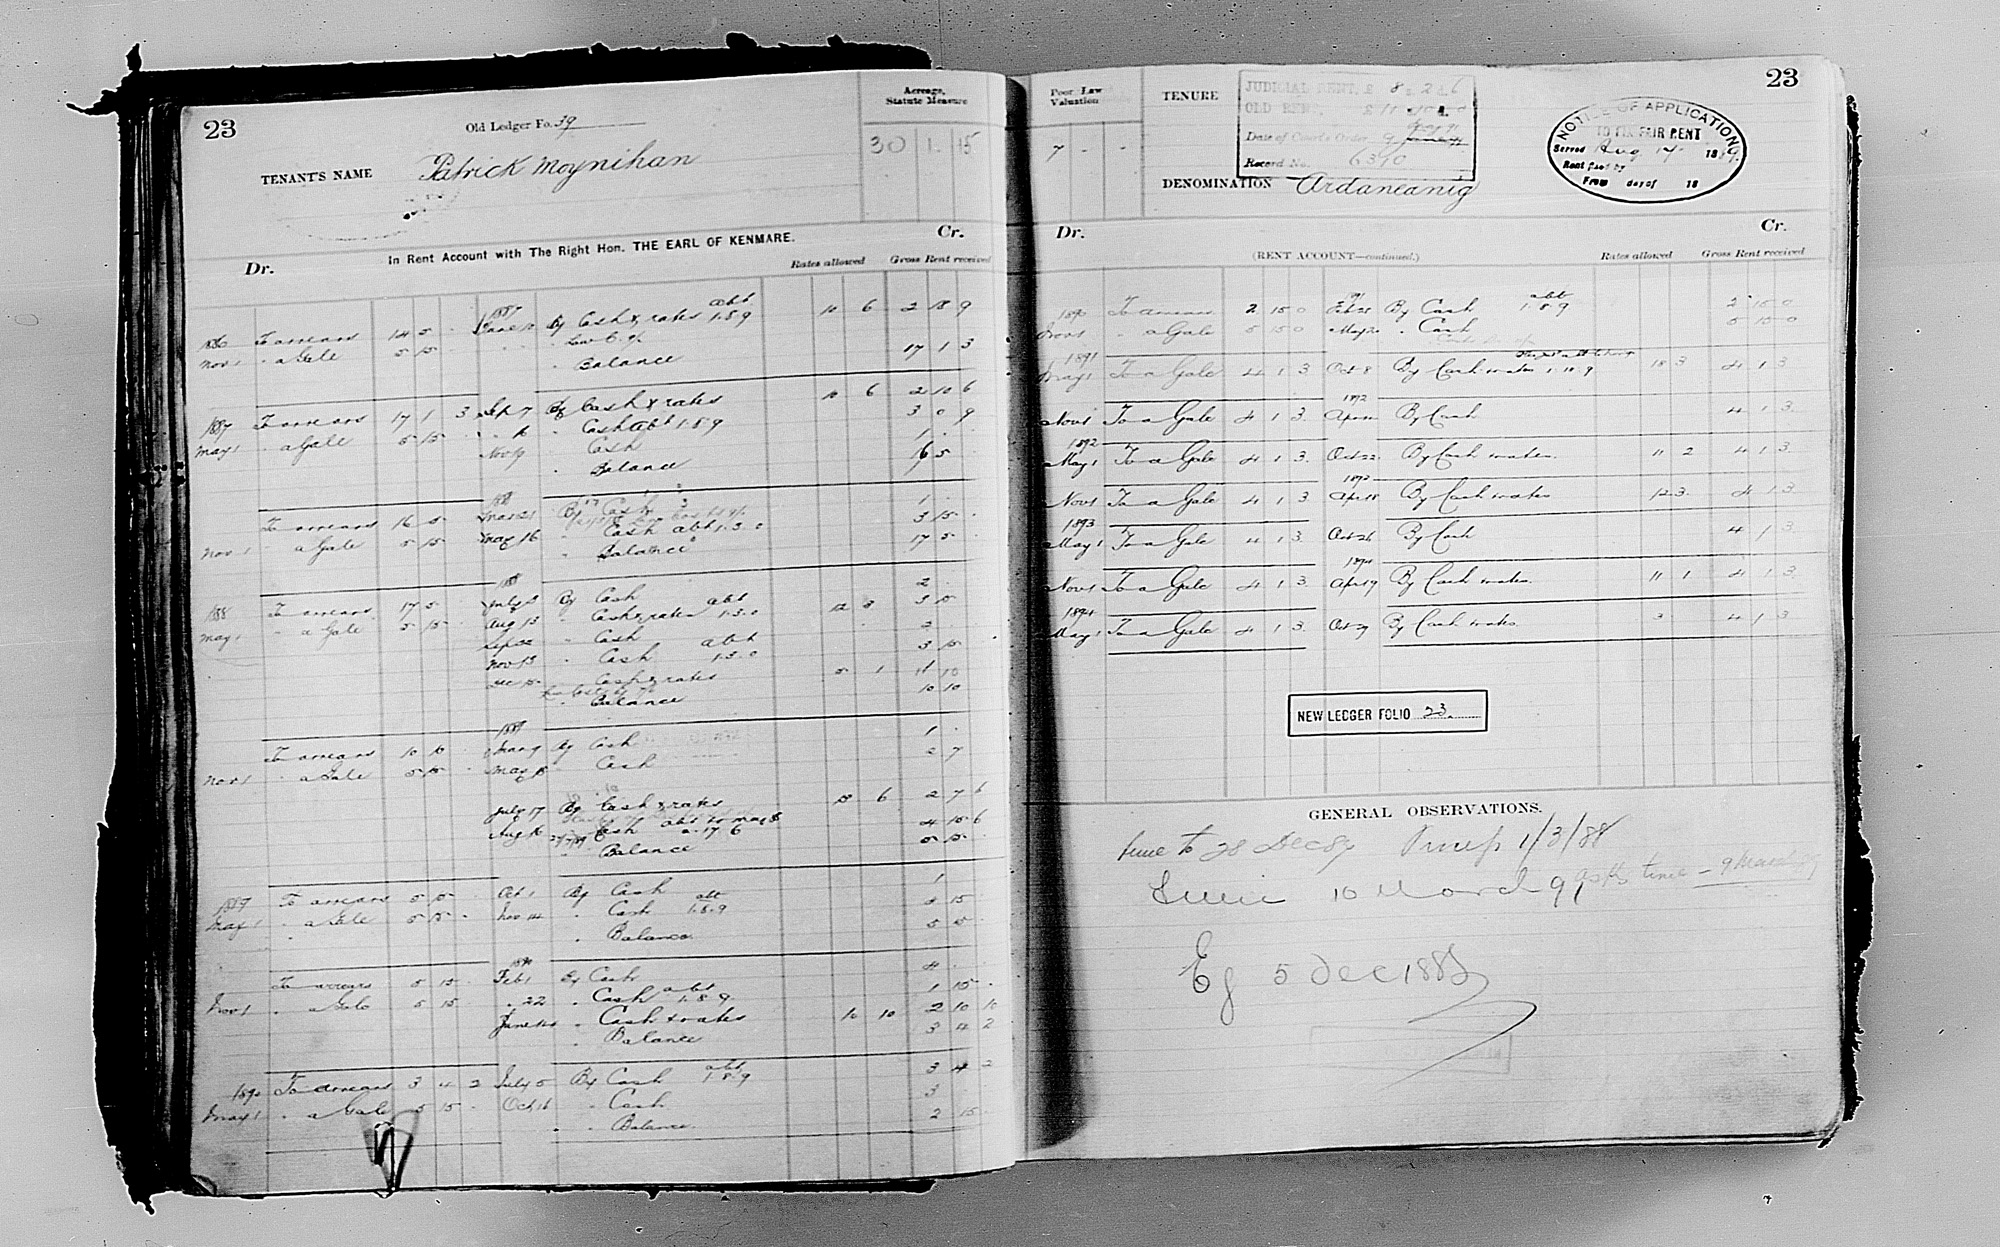 23
Old Ledger Fo. 39
Acreage, Statute Measure
TENANT'S NAME Patrick Moynihan
30 1 15
In Rent Account with The Right Hon. THE EARL OF KENMARE.
Dr. Cr.
Rates allowed Gross Rent received
1887
1886 To arrears 14 5 - June By Cash & rates abt 1.8.9 10 6 2 18 9
Nov 1 " a Gale 5 15 -
" Balance 17 1 3
1887 To arrears 17 1 3 Sept 7 By Cash & rates 10 6 2 10 6
May 1 " a Gale 5 15 " 16 " Cash abt 1.8.9 3 0 9
Nov 19 " Cash 1 - -
" Balance 16 5 -
1888
To arrears 16 5 - Mar 21 By Cash 1 - -
Nov 1 " a Gale 5 15 - May 16 " Cash abt 1.3.0 3 15 -
" Balance 17 5 -
1888
1888 To arrears 17 5 July 3 By Cash 2 -
May 1 " a Gale 5 15 - Aug 13 " Cash & rates abt 1.3.0 12 3 3 15
Sept " Cash
Nov 13 " Cash abt 1.3.0 3 15
Dec 15 " Cash & rates 5 1
" Balance 10 10
1889
To arrears 10 10 By Cash 1 -
Nov 1 " a Gale 5 15 - May " Cash 2 7
July 17 By Cash & rates 10 6 2 7 6
Aug 16 " Cash abt to May 88 2.17.6 4 15 6
" Balance 5 15 -
1889 To arrears 5 15 - Oct 1 By Cash 1
May 1 " a Gale 5 15 - Nov 14 " Cash abt 1.8.9 4 15
" Balance 5 15
1890
To arrears 5 15 Feb 1 By Cash 4 -
Nov 1 " a Gale 5 15 " 22 " Cash abt 1.8.9 1 15 -
June " Cash & rates 10 10 2 10 10
" Balance 3 4 2
1890 To arrears 3 4 2 July 5 By Cash abt 1.8.9 3 4 2
May 1 " a Gale 5 15 - Oct 16 " Cash 3
" Balance 2 15 -
23
Poor Law Valuation
7 - -
TENURE
JUDICIAL RENT, £ 8 2 6
OLD RENT, £ 11 10
Date of Court's Order, 9
Record No. 6310
DENOMINATION Ardaneanig
NOTICE OF APPLICATION
TO FIX FAIR RENT
Served Aug 17 1889.
Rent fixed by
From day of 18
Dr. Cr.
(RENT ACCOUNT—continued.)
Rates allowed Gross Rent received
1890 To arrears 2 15 0 Feb 28 By Cash abt 1.8.9 2 15 0
Nov 1 " a Gale 5 15 0 May 20 " Cash 5 15 0
1891
May 1 To a Gale 4 1 3 Oct 8 By Cash & rates 1.18.9 18 3 4 1 3
1892
Nov 1 To a Gale 4 1 3. Apr By Cash 4 1 3.
1892
May 1 To a Gale 4 1 3. Oct 22 By Cash & rates. 11 2 4 1 3.
1893
Nov 1 To a Gale 4 1 3 Apr 18 By Cash & rates 12 3. 4 1 3.
1893
May 1 To a Gale 4 1 3. Oct 26 By Cash 4 1 3
1894
Nov 1 To a Gale 4 1 3. Apr 19 By Cash & rates. 11 1 4 1 3.
1894
May 1 To a Gale 4 1 3. Oct 29 By Cash & rates. 3 4 1 3
NEW LEDGER FOLIO 23.
GENERAL OBSERVATIONS.
time to 28 Dec 1/3/88
10 March 9 asks time - 9 March 89
Ej 5 Dec 1888